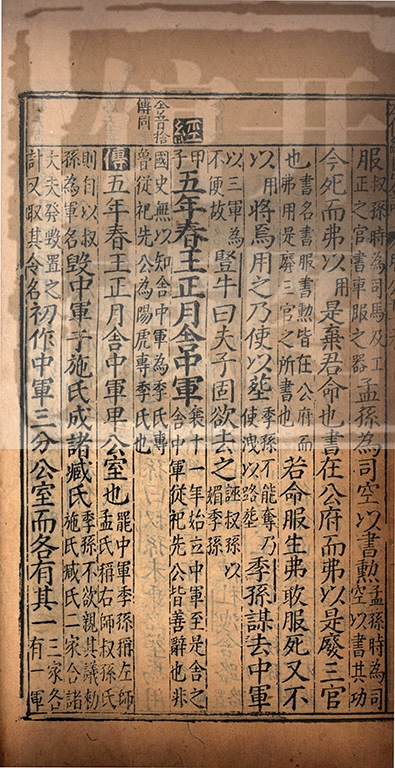 服叔孫時為司馬及工正之官書車服之器孟孫為司空以書勲孟孫時為司空以書其功
今死而弗以用是棄君命也書在公府而弗以是廢三官
也書名書服書勲皆在公府而弗用是廢三官之所書也若命服生弗敢服死又不
以用將焉用之乃使以葬季孫不能奪乃使洩以路葬季孫謀去中軍
以三軍為不便故豎牛曰夫子固欲去之誣叔孫以媚季孫
經
甲子五年春王正月舍中軍襄十一年始立中軍至是舍之舍中軍從祀先公皆善辭也非
舍音捨
傳同
國史無以知舍中軍為季氏專魯從祀先公為陽虎專季氏也
傳五年春王正月舍中軍卑公室也罷中軍季孫稱左師孟氏稱右師叔孫氏
則自以叔孫為軍名毀中軍于施氏成諸臧氏季孫不欲親其議勑施氏臧氏二家合諸
大夫發毀置之計又取其令名初作中軍三分公室而各有其一三家各有一軍